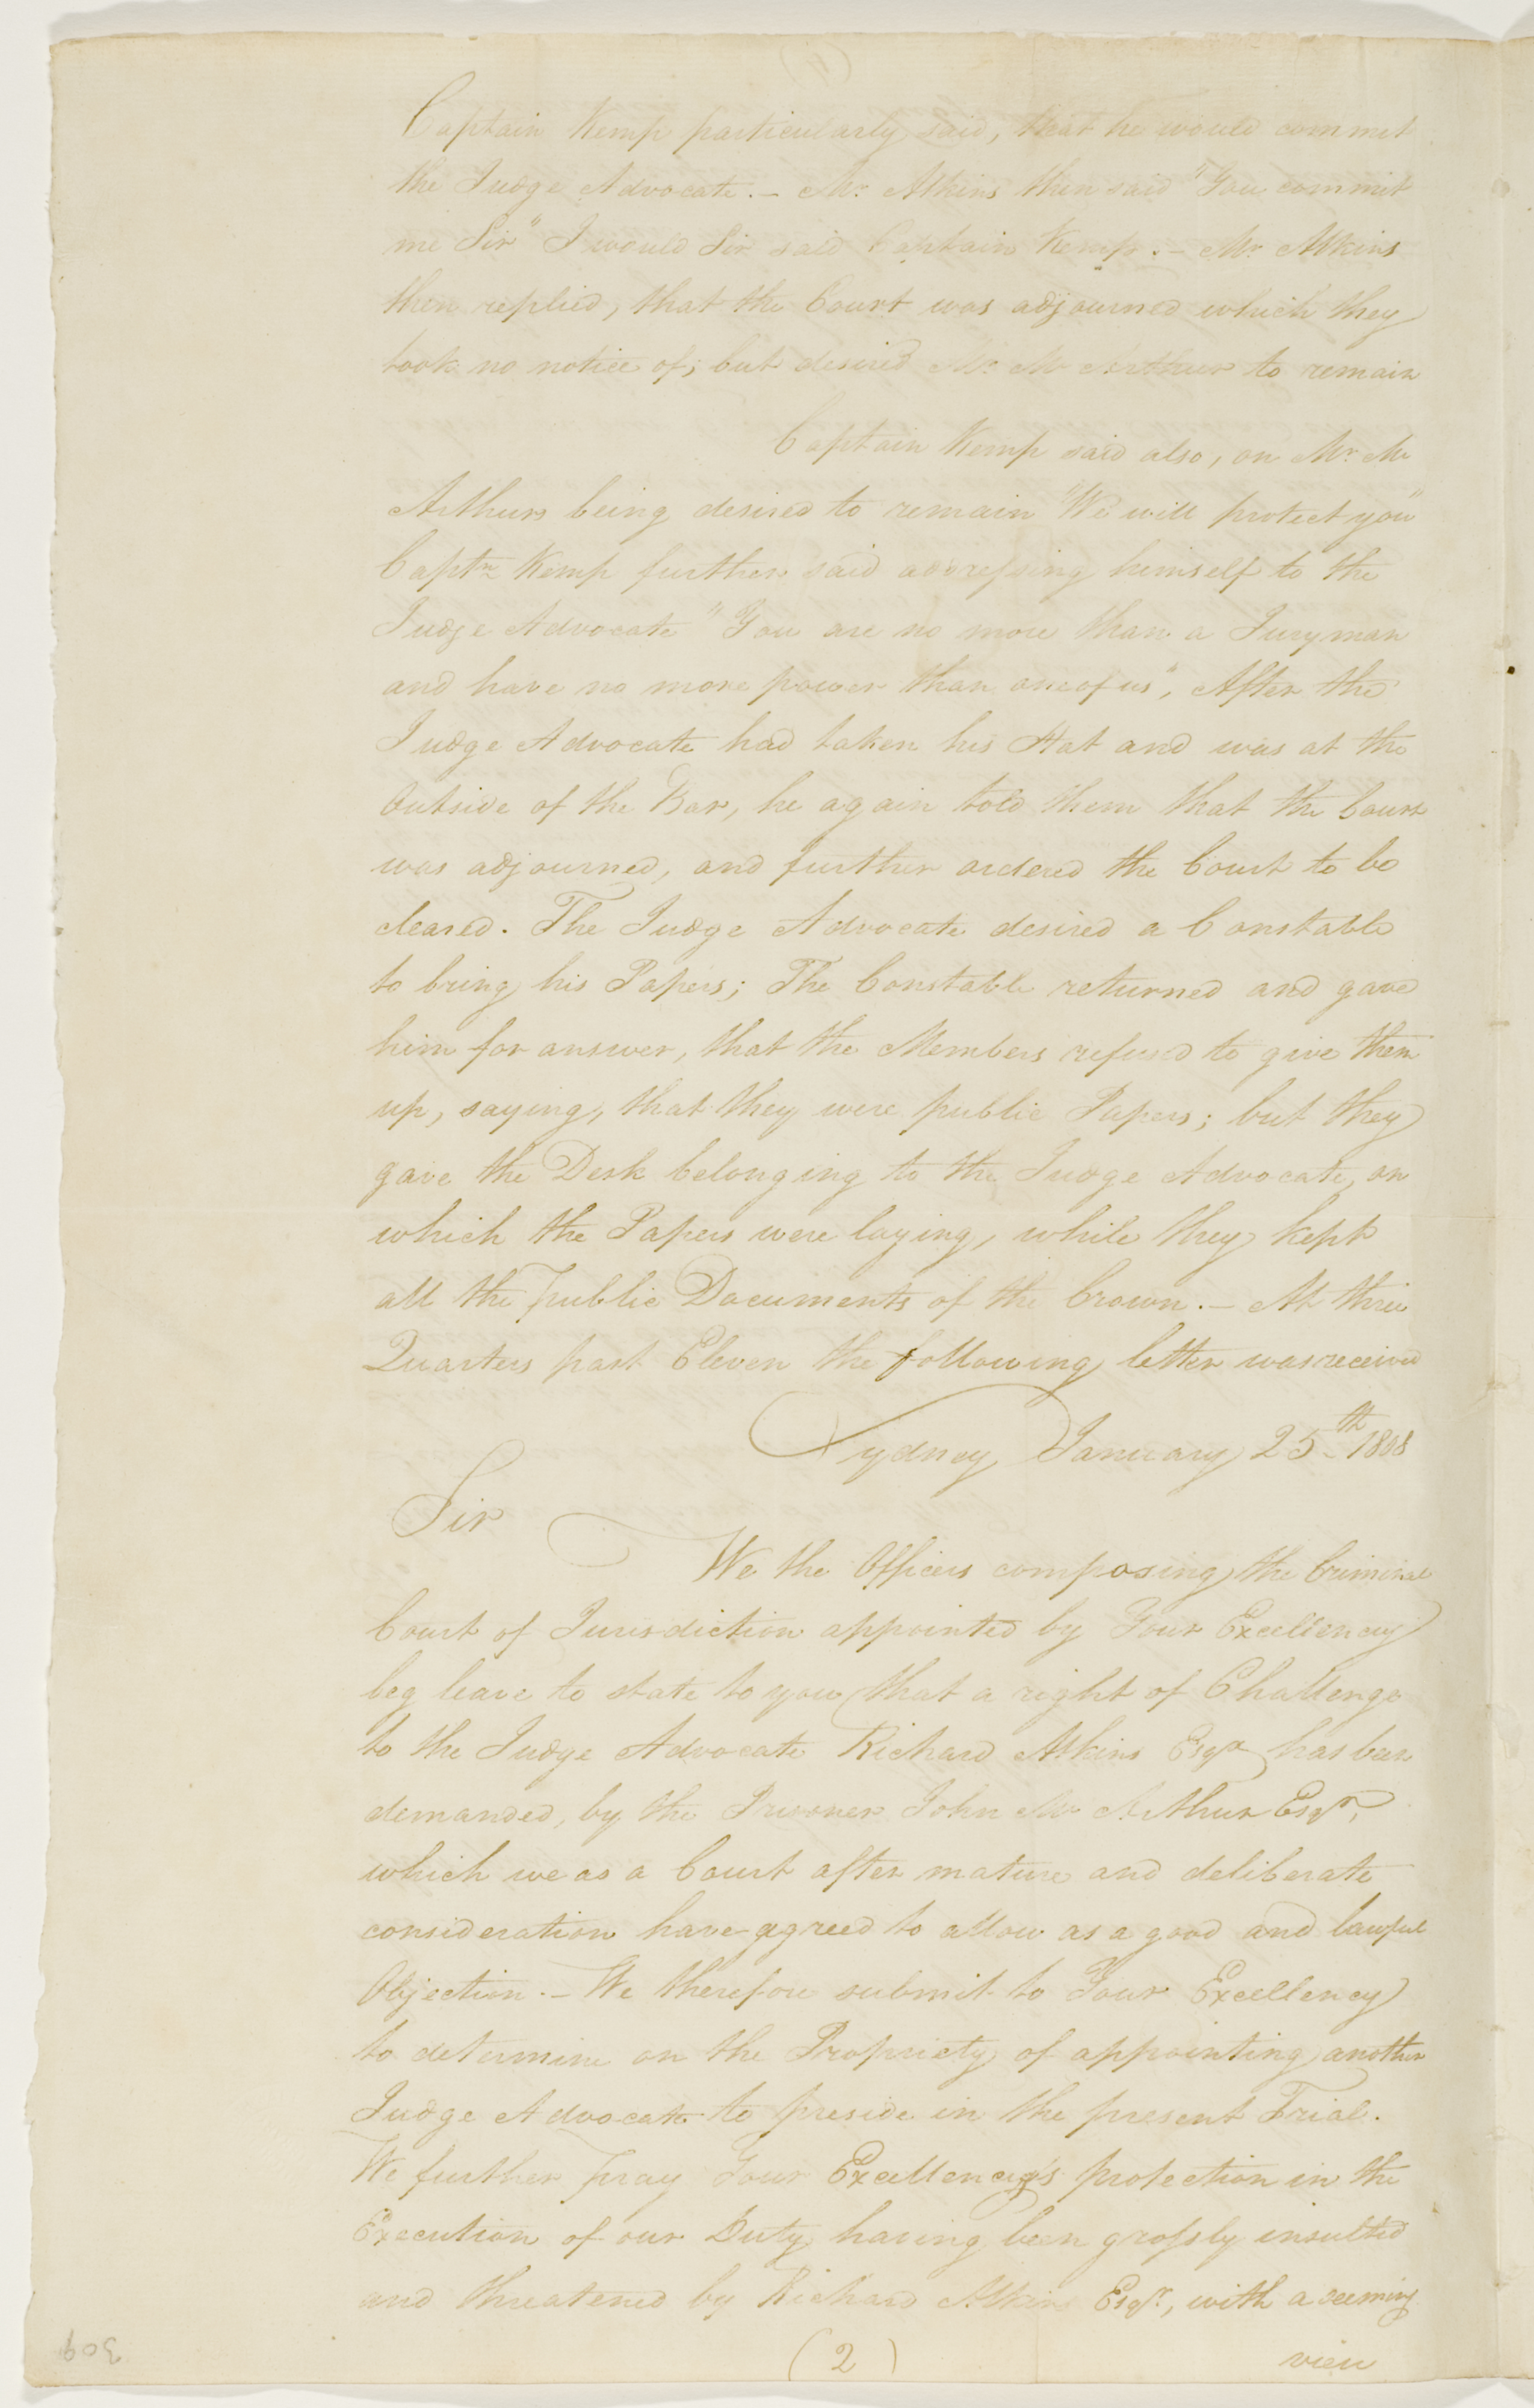 Captain Kemp particularly said, that he would commit
the Judge Advocate. – Mr. Atkins then said "You commit
me Sir" I would Sir said Captain Kemp. – Mr. Atkins
then replied, that the Court was adjourned which they
took no notice of; but desired Mr. Mc Arthur to remain
Captain Kemp said also, on Mr. Mc
Arthurs being desired to remain "We will protect you"
Captn. Kemp further said addressing himself to the
Judge Advocate "You are no more than a Juryman
and have no more power than one of us", After the
Judge Advocate had taken his Hat and was at the
Outside of the Bar, he again told them that the Court
was adjourned, and further ordered the Court to be
cleared. The Judge Advocate desired a Constable
to bring his Papers; The Constable returned and gave
him for answer, that the Members refused to give them
up, saying, that they were public Papers; but they
gave the Desk belonging to the Judge Advocate, on
which the Papers were laying, while they kept
all the public Documents of the Crown. – At three
Quarters past Eleven the following letter was received
Sydney January 25th. 1808
Sir
We the Officers composing the Criminal
Court of Jurisdiction appointed by Your Excellency
beg leave to state to you that a right of Challenge
to the Judge Advocate Richard Atkins Esqr. has been
demanded, by the Prisoner John Mc Arthur Esqr.,
which we as a Court after mature and deliberate
consideration have agreed to allow as a good and lawful
Objection. – We therefore submit to Your Excellency
to determine on the Propriety of appointing another
Judge Advocate to preside in the present Trial.
We further pray Your Excellency's protection in the
Execution of our Duty having been grossly insulted
and threatened by Richard Atkins Esqr., with a seeming
(2) view
309